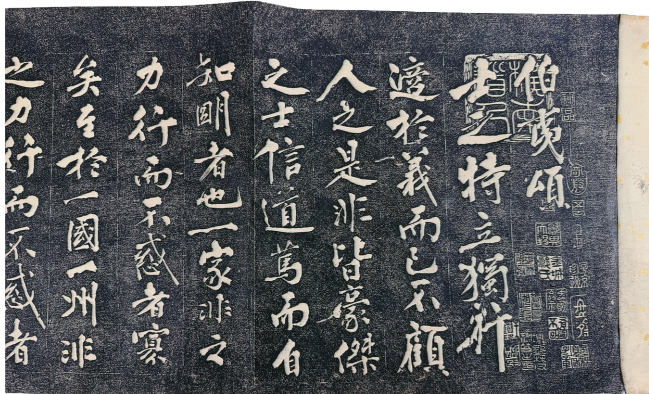 伯夷頌
士之特立獨行
適於義而已不顧
人之是非皆豪傑
之士信道篤而自
知明者也一家非之
力行而不惑者寡
矣至於一國一州非
之力行而不惑者